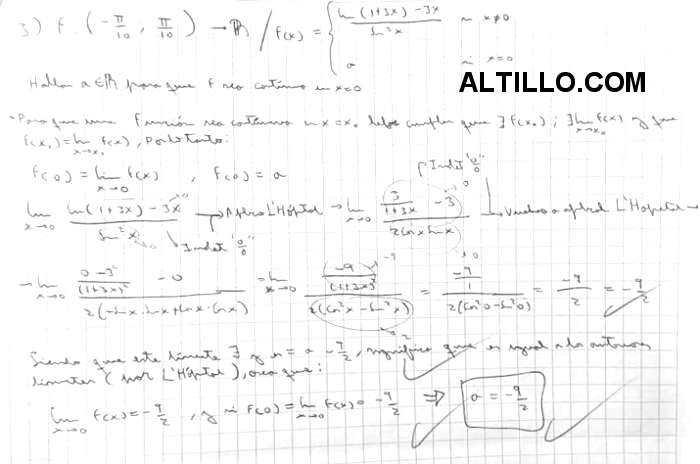 3) f. (-π/10, π/10) → ℝ / f(x) = { (ln(1+3x) - 3x)/(sen² x) si x≠0
a si x=0
Hallar a ∈ ℝ para que f sea continua en x=0
ALTILLO.COM
- Para que una función sea continua en x=x₀ debe cumplir que ∃ f(x₀) ; ∃ lim x→x₀ f(x) y que
f(x₀) = lim x→x₀ f(x), por lo tanto:
f(0) = lim x→0 f(x) , f(0) = a
Indet "0/0"
lim x→0 (ln(1+3x) - 3x)/(sen² x) → Aplico L'Hôpital → lim x→0 (3/(1+3x) - 3)/(2 cos x sen x) → Vuelvo a aplicar L'Hopital →
Indet "0/0"
→ lim x→0 ((0-3²)/(1+3x)² - 0)/(2(-sen x . sen x + cos x . cos x)) = lim x→0 (-9/(1+3x)²)/(2(cos² x - sen² x)) = (-9/1)/(2(cos² 0 - sen² 0)) = -9/2 = -9/2
Siendo que este límite ∃ y es = a -9/2, significa que es igual a los anteriores
límites (por L'Hôpital), o sea que:
lim x→0 f(x) = -9/2 , y si f(0) = lim x→0 f(x) = -9/2 ⇒ a = -9/2